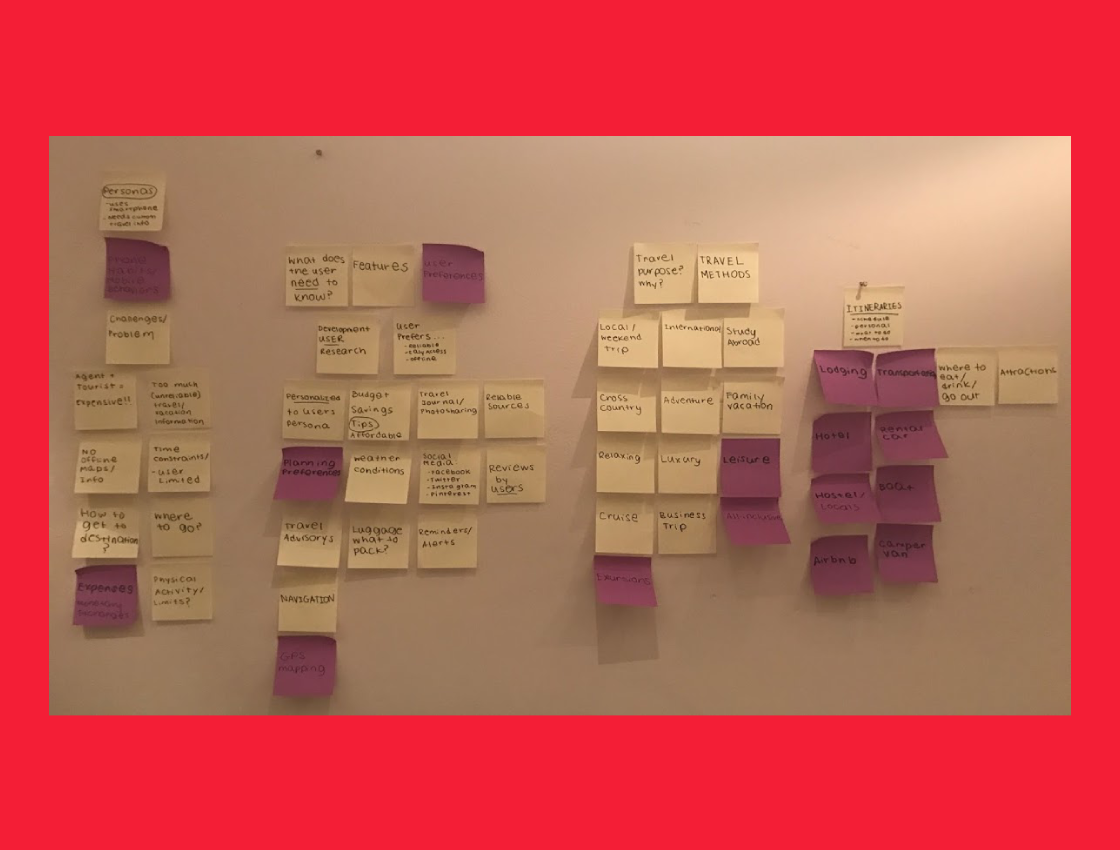 Personas
-uses
smartphone
travel info
Challenges/
Problem
Agent +
Tourist =
expensive!!
Too much
(unreliable)
travel/
vacation
information
NO
offline
maps/
Info
Time
constraints/
-user
Limited
How to
get to
destination
?
Where
to go?
Expenses
Physical
Activity/
Limits?
What does
the user
need to
know?
Features
User
Preferences
Development
USER
Research
User
Prefers...
-Reliable
-Easy access
-offline
Personalized
to users
persona
Budget
Savings
Tips
Affordable
Travel
Journal/
Photosharing
Reliable
Sources
Planning
Preferences
Weather
conditions
Social
Media
-Facebook
-Twitter
-Instagram
-Pinterest
Reviews
by
users
Travel
Advisorys
Luggage
what to
pack?
Reminders/
Alerts
NAVIGATION
GPS
mapping
Travel
purpose?
why?
TRAVEL
METHODS
Local/
weekend
Trip
International
Study
Abroad
Cross
country
Adventure
Family
vacation
Relaxing
Luxury
Leisure
Cruise
Business
Trip
All inclusive
Excursions
ITINERARIES
-personal
Lodging
Transportation
where to
eat/
drink/
go out
Attractions
Hotel
Rental
Car
Hostel/
Locals
Boat
Airbnb
Camper
van